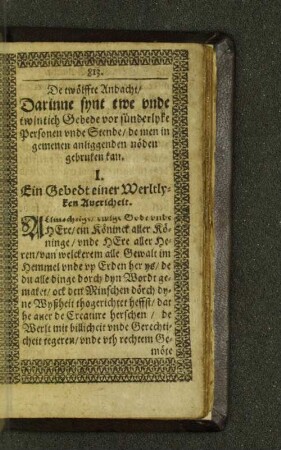 813.
De twölffte Andacht/
Darinne synt twe vnde
twintich Gebede vor sünderlyke
Personen vnde Stende/ de men in
gemenen anliggenden nöden
gebruken kan.
I.
Ein Gebedt einer Werltly-
ken Avericheit.
Almechtige/ ewige Godt vnde
HEre/ ein Köninck aller Kö-
ninge/ vnde HEre aller He-
ren/ van welckerem alle Gewalt im
Hemmel vnde vp Erden her ys/ de
du alle dinge dorch dyn Wordt ge-
maket/ ock den Minschen dörch dy-
ne Wyßheit thogerichtet heffst/ dat
he aver de Creature herschen/ de
Werlt mit billicheit vnde Gerechti-
cheit regeren/ vnde vth rechtem Ge-
möte